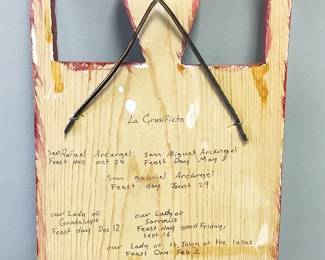 La Crusificto
San Rafael Arcangel
Feast day oct 24
San Miguel Arcangel
Feast Day May 8
San gabriel Arcangel
Feast day Sept 29
our Lady of
Guadalupe
Feast day Dec 12
our Lady of
Sorrows
Feast day good Friday,
Sept 16
our Lady of St. John of the lakes
Feast Day Feb 2